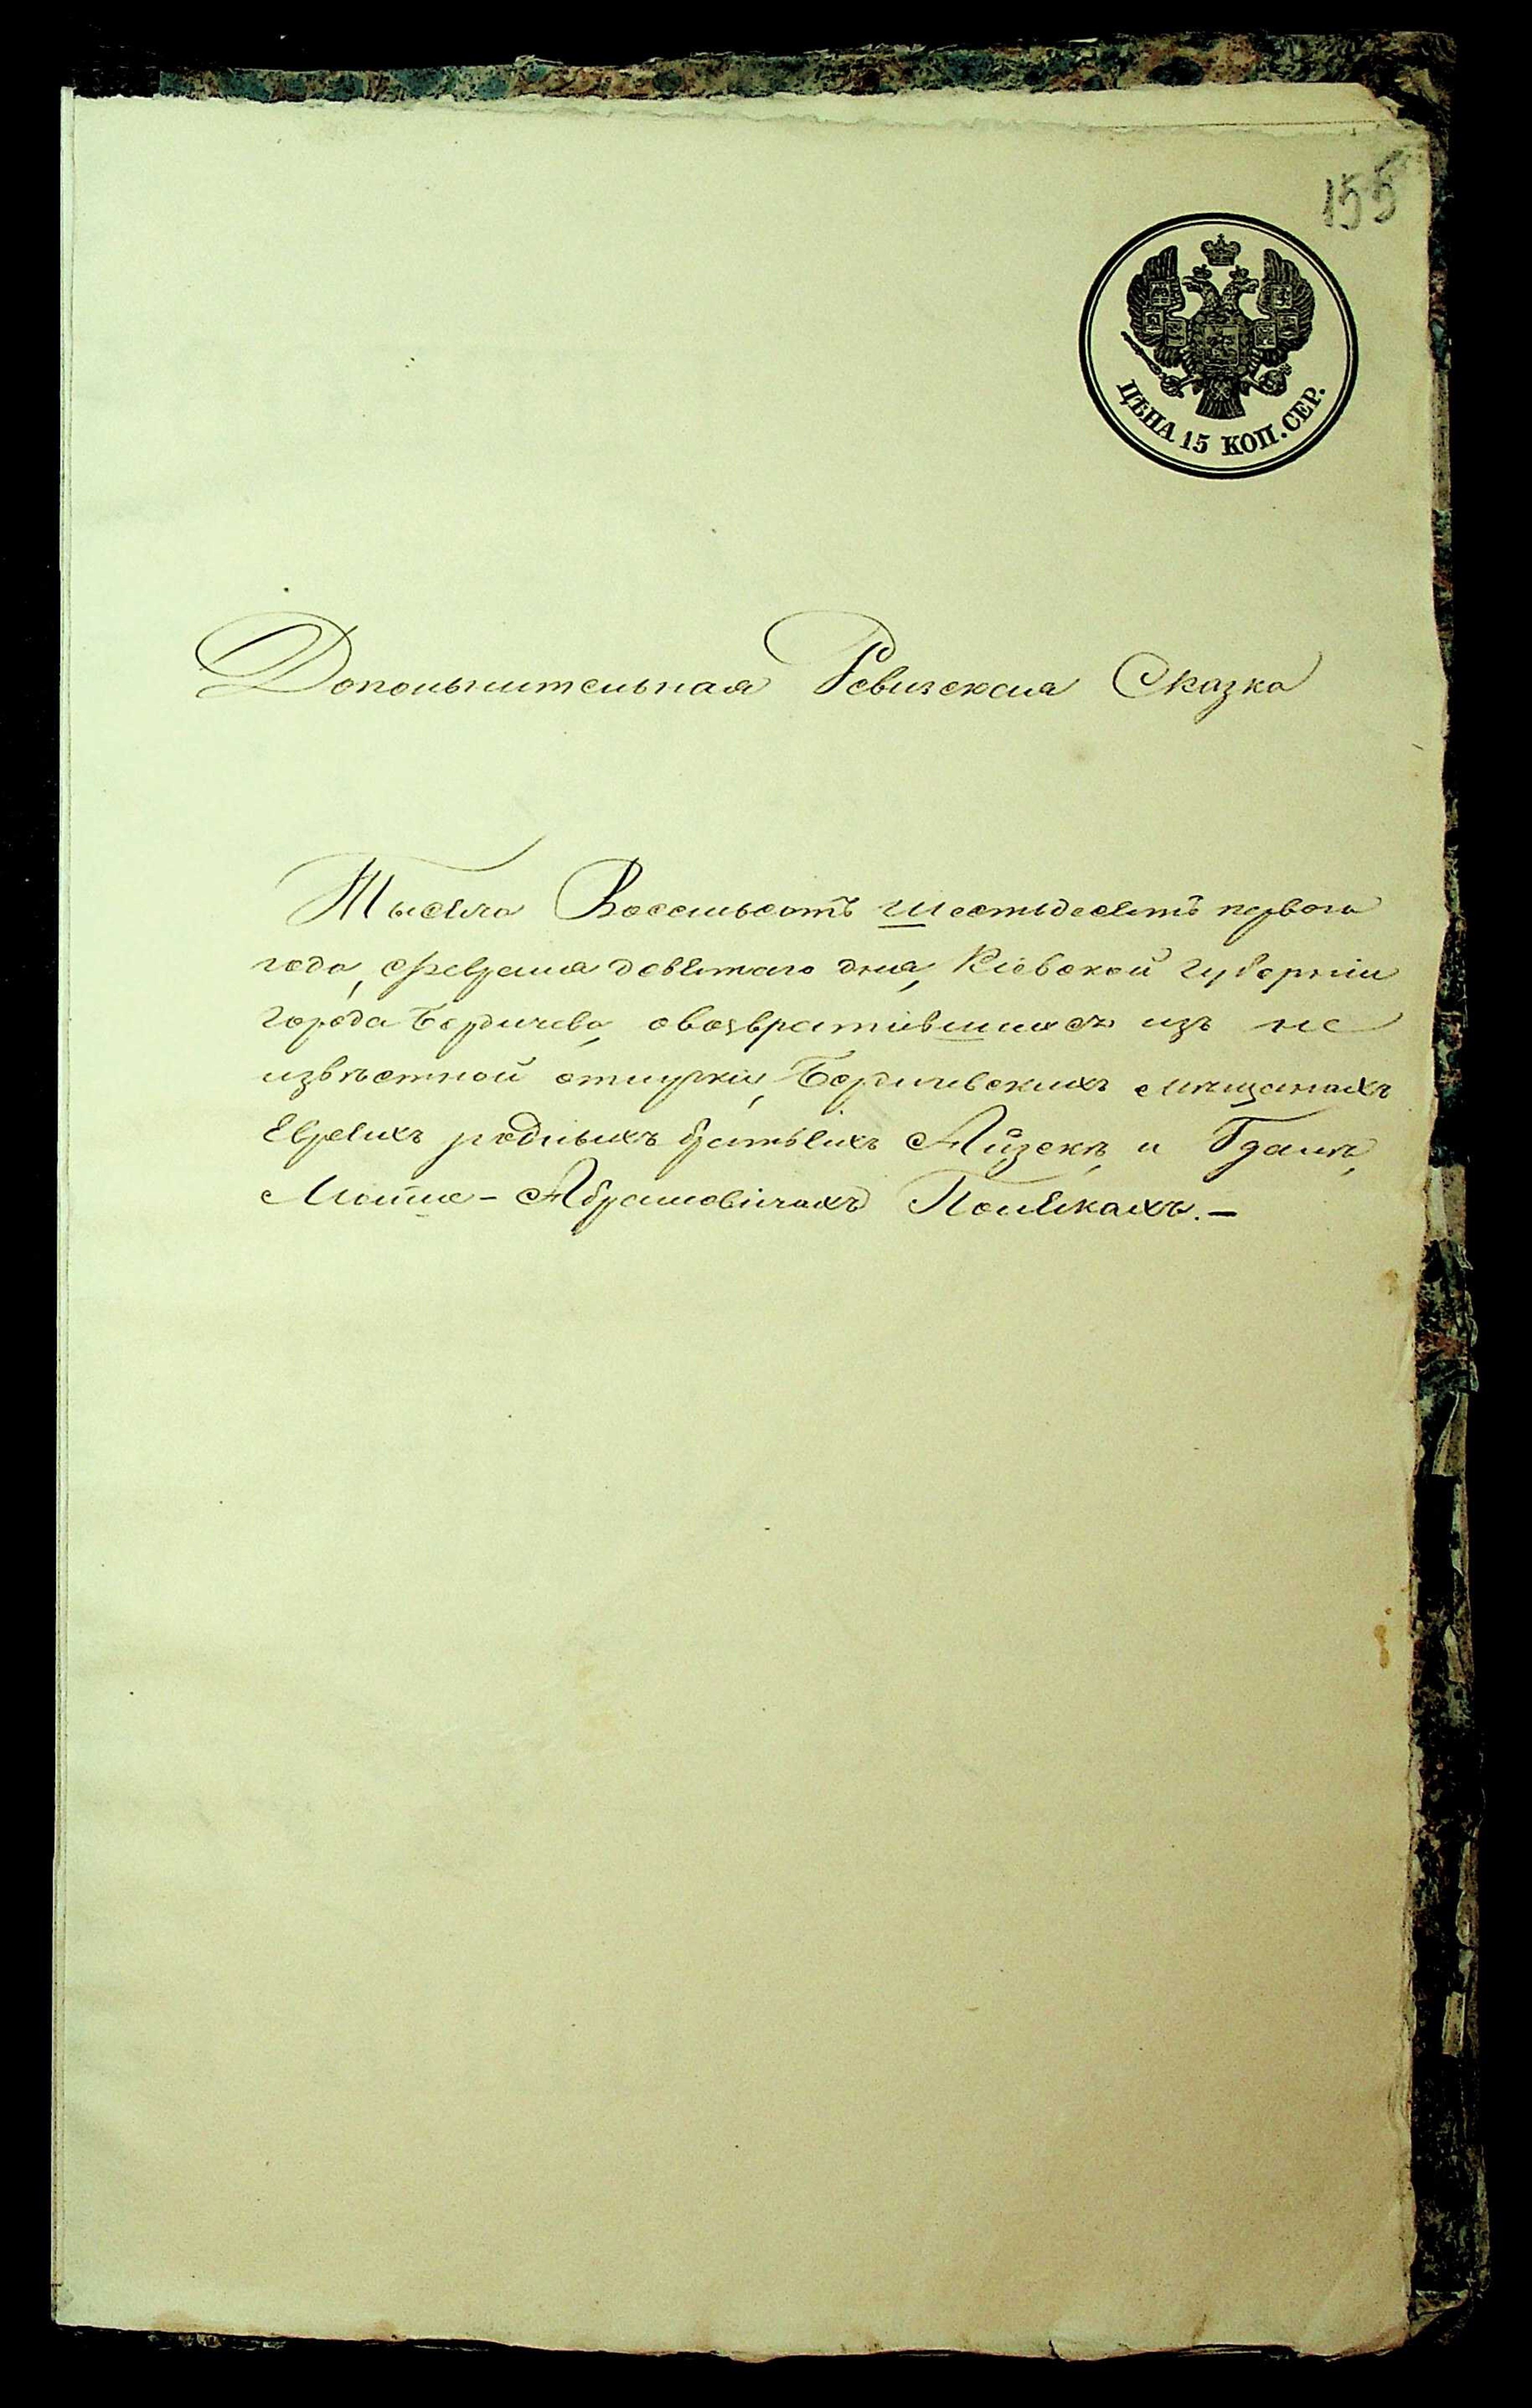 155
ЦѢНА 15 КОП. СЕР.
Дополнительная Ревизская Сказка
Тысяча Восемьсотъ шестьдесятъ перваго
года, Февраля девятаго дня, Кіевской губерніи
города Бердичева, овозвратившихся изъ не
извѣстной отлучки, Бердичевскихъ мѣщанахъ
Евреяхъ родныхъ братьяхъ Айзекѣ, и
Мотше - Абрамовичахъ Полякахъ. -